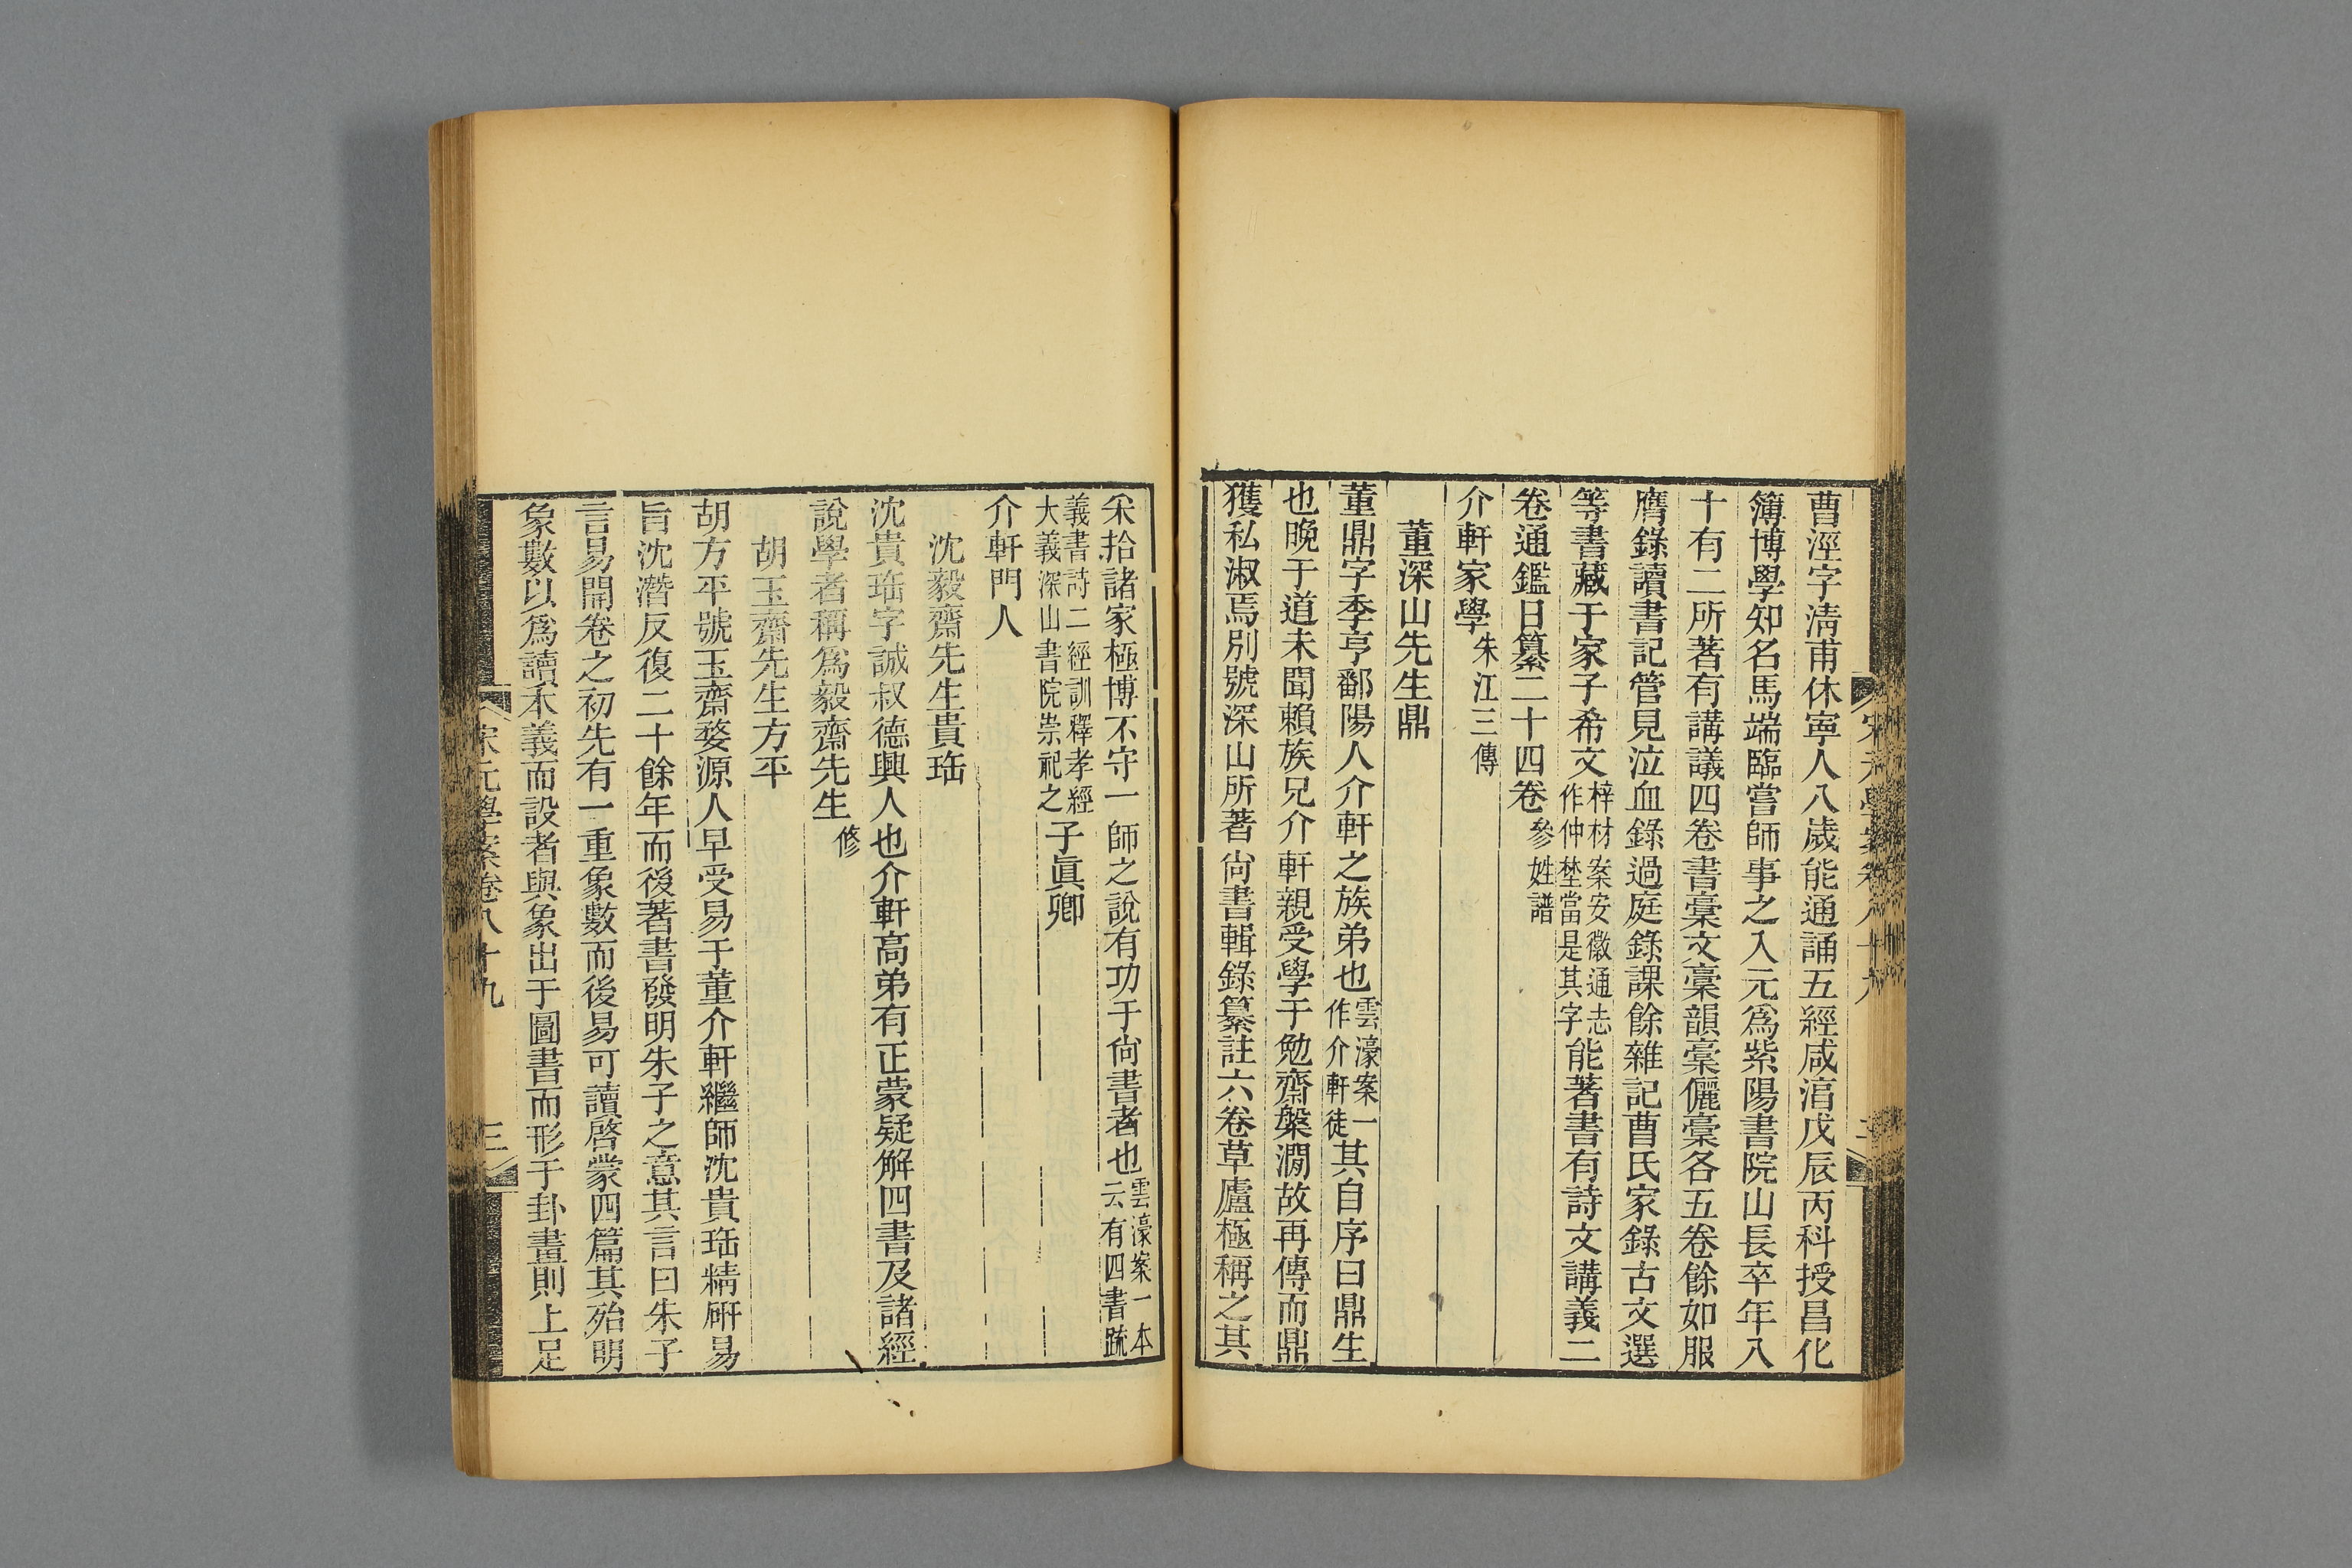 曹涇字清甫休寧人八歲能通誦五經咸淳戊辰丙科授昌化
簿博學知名馬端臨嘗師事之入元爲紫陽書院山長卒年八
十有二所著有講議四卷書稾文稾韻稾儷稾各五卷餘如服
膺錄讀書記管見泣血錄過庭錄課餘雜記曹氏家錄古文選
等書藏于家子希文梓材案安徽通志作仲埜當是其字能著書有詩文講義二
卷通鑑日纂二十四卷參姓譜
介軒家學朱江三傳
董深山先生鼎
董鼎字季亨鄱陽人介軒之族弟也雲濠案一作介軒徒其自序曰鼎生
也晚于道未聞賴族兄介軒親受學于勉齋槃澗故再傳而鼎
獲私淑焉別號深山所著尙書輯錄纂註六卷草廬極稱之其
采拾諸家極博不守一師之說有功于尙書者也雲濠案一本云有四書疏
義書詩二經訓釋孝經大義深山書院崇祀之子眞卿
介軒門人
沈毅齋先生貴珤
沈貴珤字誠叔德興人也介軒高弟有正蒙疑解四書及諸經
說學者稱爲毅齋先生修
胡玉齋先生方平
胡方平號玉齋婺源人早受易于董介軒繼師沈貴珤精硏易
旨沈潛反復二十餘年而後著書發明朱子之意其言曰朱子
言易開卷之初先有一重象數而後易可讀啓蒙四篇其殆明
象數以爲讀本義而設者與象出于圖書而形于卦畫則上足
宋元學案卷八十九
三